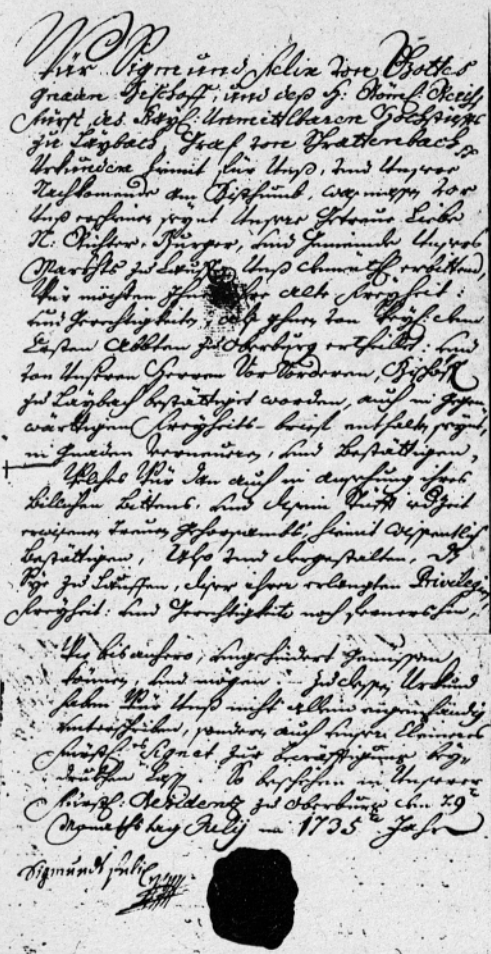 Wür Sigmund Felix von Gottes
gnaden Bischoff, und deß H: Röm: Reichs
Fürst, des Kayl: Unmittlbaren
zu Laybach, Graf von Schrattenbach
Urkunden hiemit für Unß, und Unsere
Nachkomende am Bisthumb, wasmassen vor
Unß erschinen seynt Unsere Getreue Liebe
N: Richter, Burger, und Gemeinde Unsers
Marckhts zu Lauffen, Unß demüth: erbittend,
Wür möchten Ihnen Ihre alte Freyheit:
und Gerechtigkeiten, so Ihnen von
Lesten Abbten zu Oberburg ertheillet: und
von Unseren Herren Vorvorderen, Bischöffen
zu Laybach bestättiget worden, auch in gegen
wärttigen Freyheits-brief enthalten seynd,
in Gnaden verneueren, und bestättigen,
Welches Wür dan auch in ansehung ihres
billichen Bittens, und Stüfft iedzeit
erwisenen treuen gehorsambs, hiemit
bestättigen, Also und dergestalten, dß
Sye zu Lauffen, diser ihrer erlangten Privilegien
Freyheit: und Gerechtigkeiten noch fernershin,
Wie bis anhero, ungehindert geniessen
können, und mögen. Zu dessen Urkund
haben Wür Unß nicht allein eigenhändig
unterschriben, sondern auch Unser Kleineres
Fürstl: Signet zur becräfftigung
drukhen lassen. So beschehen in Unserer
Fürstl: Residentz zu Oberburg den 29
Monathstag Julij im 1735 Jahr
Sigmundt Felix